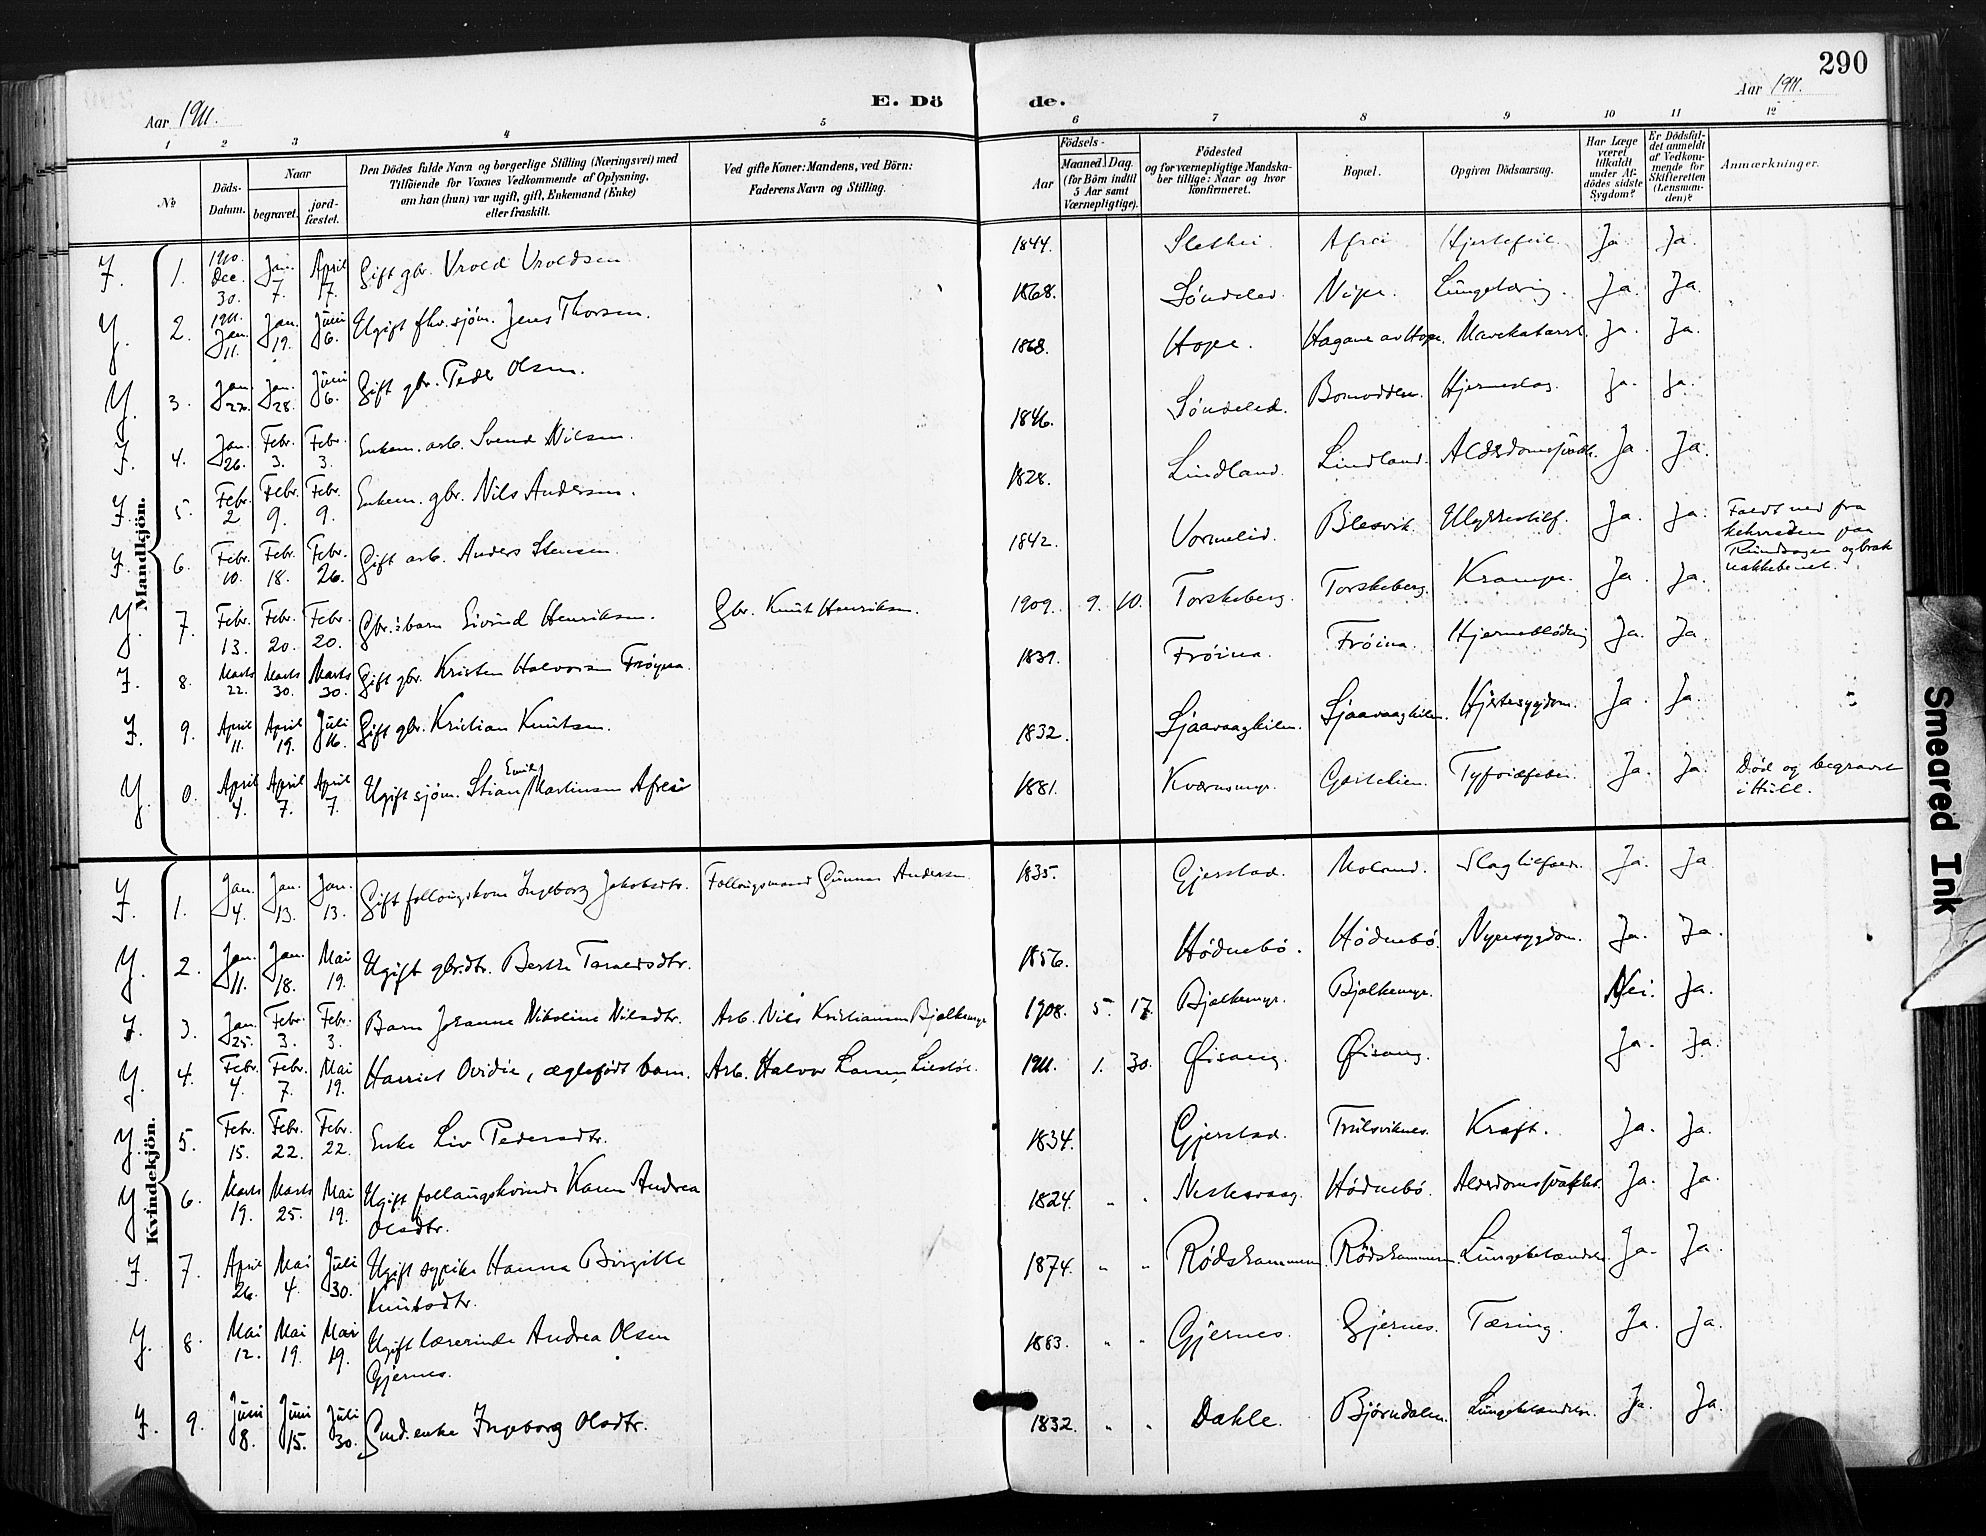 290
Aar 1911.
E. Dö
de.
Aar 1911.
1 2 3 4 5 6 7 8 9 10 11 12
No
Döds-
Datum.
Naar
begravet.
jord-
fæstet.
Den Dödes fulde Navn og borgerlige Stilling (Næringsvei) med
Tilföiende for Voxnes Vedkommende af Oplysning,
om han (hun) var ugift, gift, Enkemand (Enke)
eller fraskilt.
Ved gifte Koner: Mandens, ved Börn:
Faderens Navn og Stilling.
Födsels-
Aar
Maaned. Dag.
(for Börn indtil
5 Aar samt
Værnepligtige).
Födested
og for værnepligtige Mandska-
ber tillige: Naar og hvor
konfirmeret.
Bopæl.
Opgiven Dödsaarsag.
Har Læge
været
tilkaldt
under Af-
dödes sidste
Sygdom?
Er Dödsfal-
det anmeldt
af Vedkom-
mende for
Skifteretten
(Lensman-
den)?
Anmærkninger.
Mandkjön.
J. 1. 1910. Dec. 30. Jan. 7. April 17. Gift gbr. Vrold Vroldsen 1844. Slethei Afrei Hjertefeil Ja. Ja.
Y. 2. 1911. Jan. 11. Jan. 19. Juni 6. Ugift fhv. sjøm. Jens Thorsen. 1868. Søndeled Nipe. Lungetæring. Ja. Ja.
Y. 3. Jan. 22. Jan. 28. Juni 6. Gift gbr. Peder Olsen. 1868. Hope. Hagane av Hope. Mavekatarrh. Ja. Ja.
J. 4. Jan. 26. Febr. 3. Febr. 3. Enkem. arb. Svend Nilsen. 1846. Søndeled. Bomodden. Hjerneslag Ja. Ja.
J. 5. Febr. 2 Febr. 9. Febr. 9. Enkem. gbr. Nils Andersen. 1828. Lindland. Lindland. Alderdomssvækk. Ja. Ja.
J. 6. Febr. 10. Febr. 18. Febr. 26. Gift arb. Anders Stensen. 1842. Vormelid. Blesvik. Ulykkestilf. Ja. Ja. Faldt ned fra
paa
og brak
nakkebenet.
Y. 7. Febr. 13. Febr. 20. Febr. 20. Gbr.s barn Eivind Henriksen. Gbr. Knut Henriksen. 1909. 9. 10. Torskeberg. Torskeberg. Krampe. Ja. Ja.
J. 8. Marts 22. Marts 30. Marts 30. Gift gbr. Kristen Halvorsen Frøyna 1839. Frøina. Frøina. Hjerneblødnig Ja. Ja.
J. 9. April 11. April 19. Juli 16. Gift gbr. Kristian Knutsen. 1832. Sjaavaagkilen. Sjaavaagkilen. Hjertesygdom. Ja. Ja.
Emil
Y. 0. April 4. April 7. April 7. Ugift sjøm. Stian Martinsen Afrei 1881. Kværnmyr. Tyfoidfeber. Ja. Ja. Død og begravet
i Hull.
Kvindekjön.
J. 1. Jan. 4. Jan. 13. Jan. 13. Gift follaugskone Ingeborg Jakobsdtr. Follaugsmand Gunnar Andersen 1835. Gjerstad. Moland. Slagtilfæld. Ja. Ja
Y. 2. Jan. 11. Jan. 18. Mai 19. Ugift gbr.dtr. Berthe Taraldsdtr. 1856. Hødnebø. Hødnebø. Nyresygdom. Ja. Ja.
J. 3. Jan. 25. Febr. 3. Febr. 3. Barn Johanne Nikoline Nilsdtr. Arb. Nils Kristiansen Bjalkemyr 1908. 5. 17. Bjalkemyr. Bjalkemyr. Nei. Ja.
Y. 4. Febr. 4. Febr. 7. Mai 19. Harriet Ovidie, ægtefødt barn. Arb. Halvor Larsen, 1911. 1. 30. Øisang. Øisang. Ja. Ja.
Y. 5. Febr. 15. Febr. 22. Febr. 22. Enke Liv Pedersdtr. 1834. Gjerstad. Trulsviknes. Kræft. Ja. Ja.
Y 6. Marts 19. Marts 25. Mai 19. Ugift follaugskvinde Karen Andrea
Olsdtr. 1824. " " Nestesvaag. Hødnebø. Alderdomssvækkt. Ja. Ja.
J. 7. April 26. Mai 4. Juli 30. Ugift sypike Hanna Birgitte
Knutsdtr. 1874. " " Rødskammen. Rødskammen. Lungebetændelse Ja. Ja.
Y. 8. Mai 12. Mai 19. Mai 19. Ugift lærerinde Andrea Olsen
Gjernes. 1883. " " Gjernes. Gjernes. Tæring. Ja. Ja.
J. 9. Juni 8. Juni 15. Juli 30. Gmd.enke Ingeborg Olsdtr. 1832. " " Dahle. Bjørndalen. Lungebetændelse. Ja. Ja.
Smeared Ink